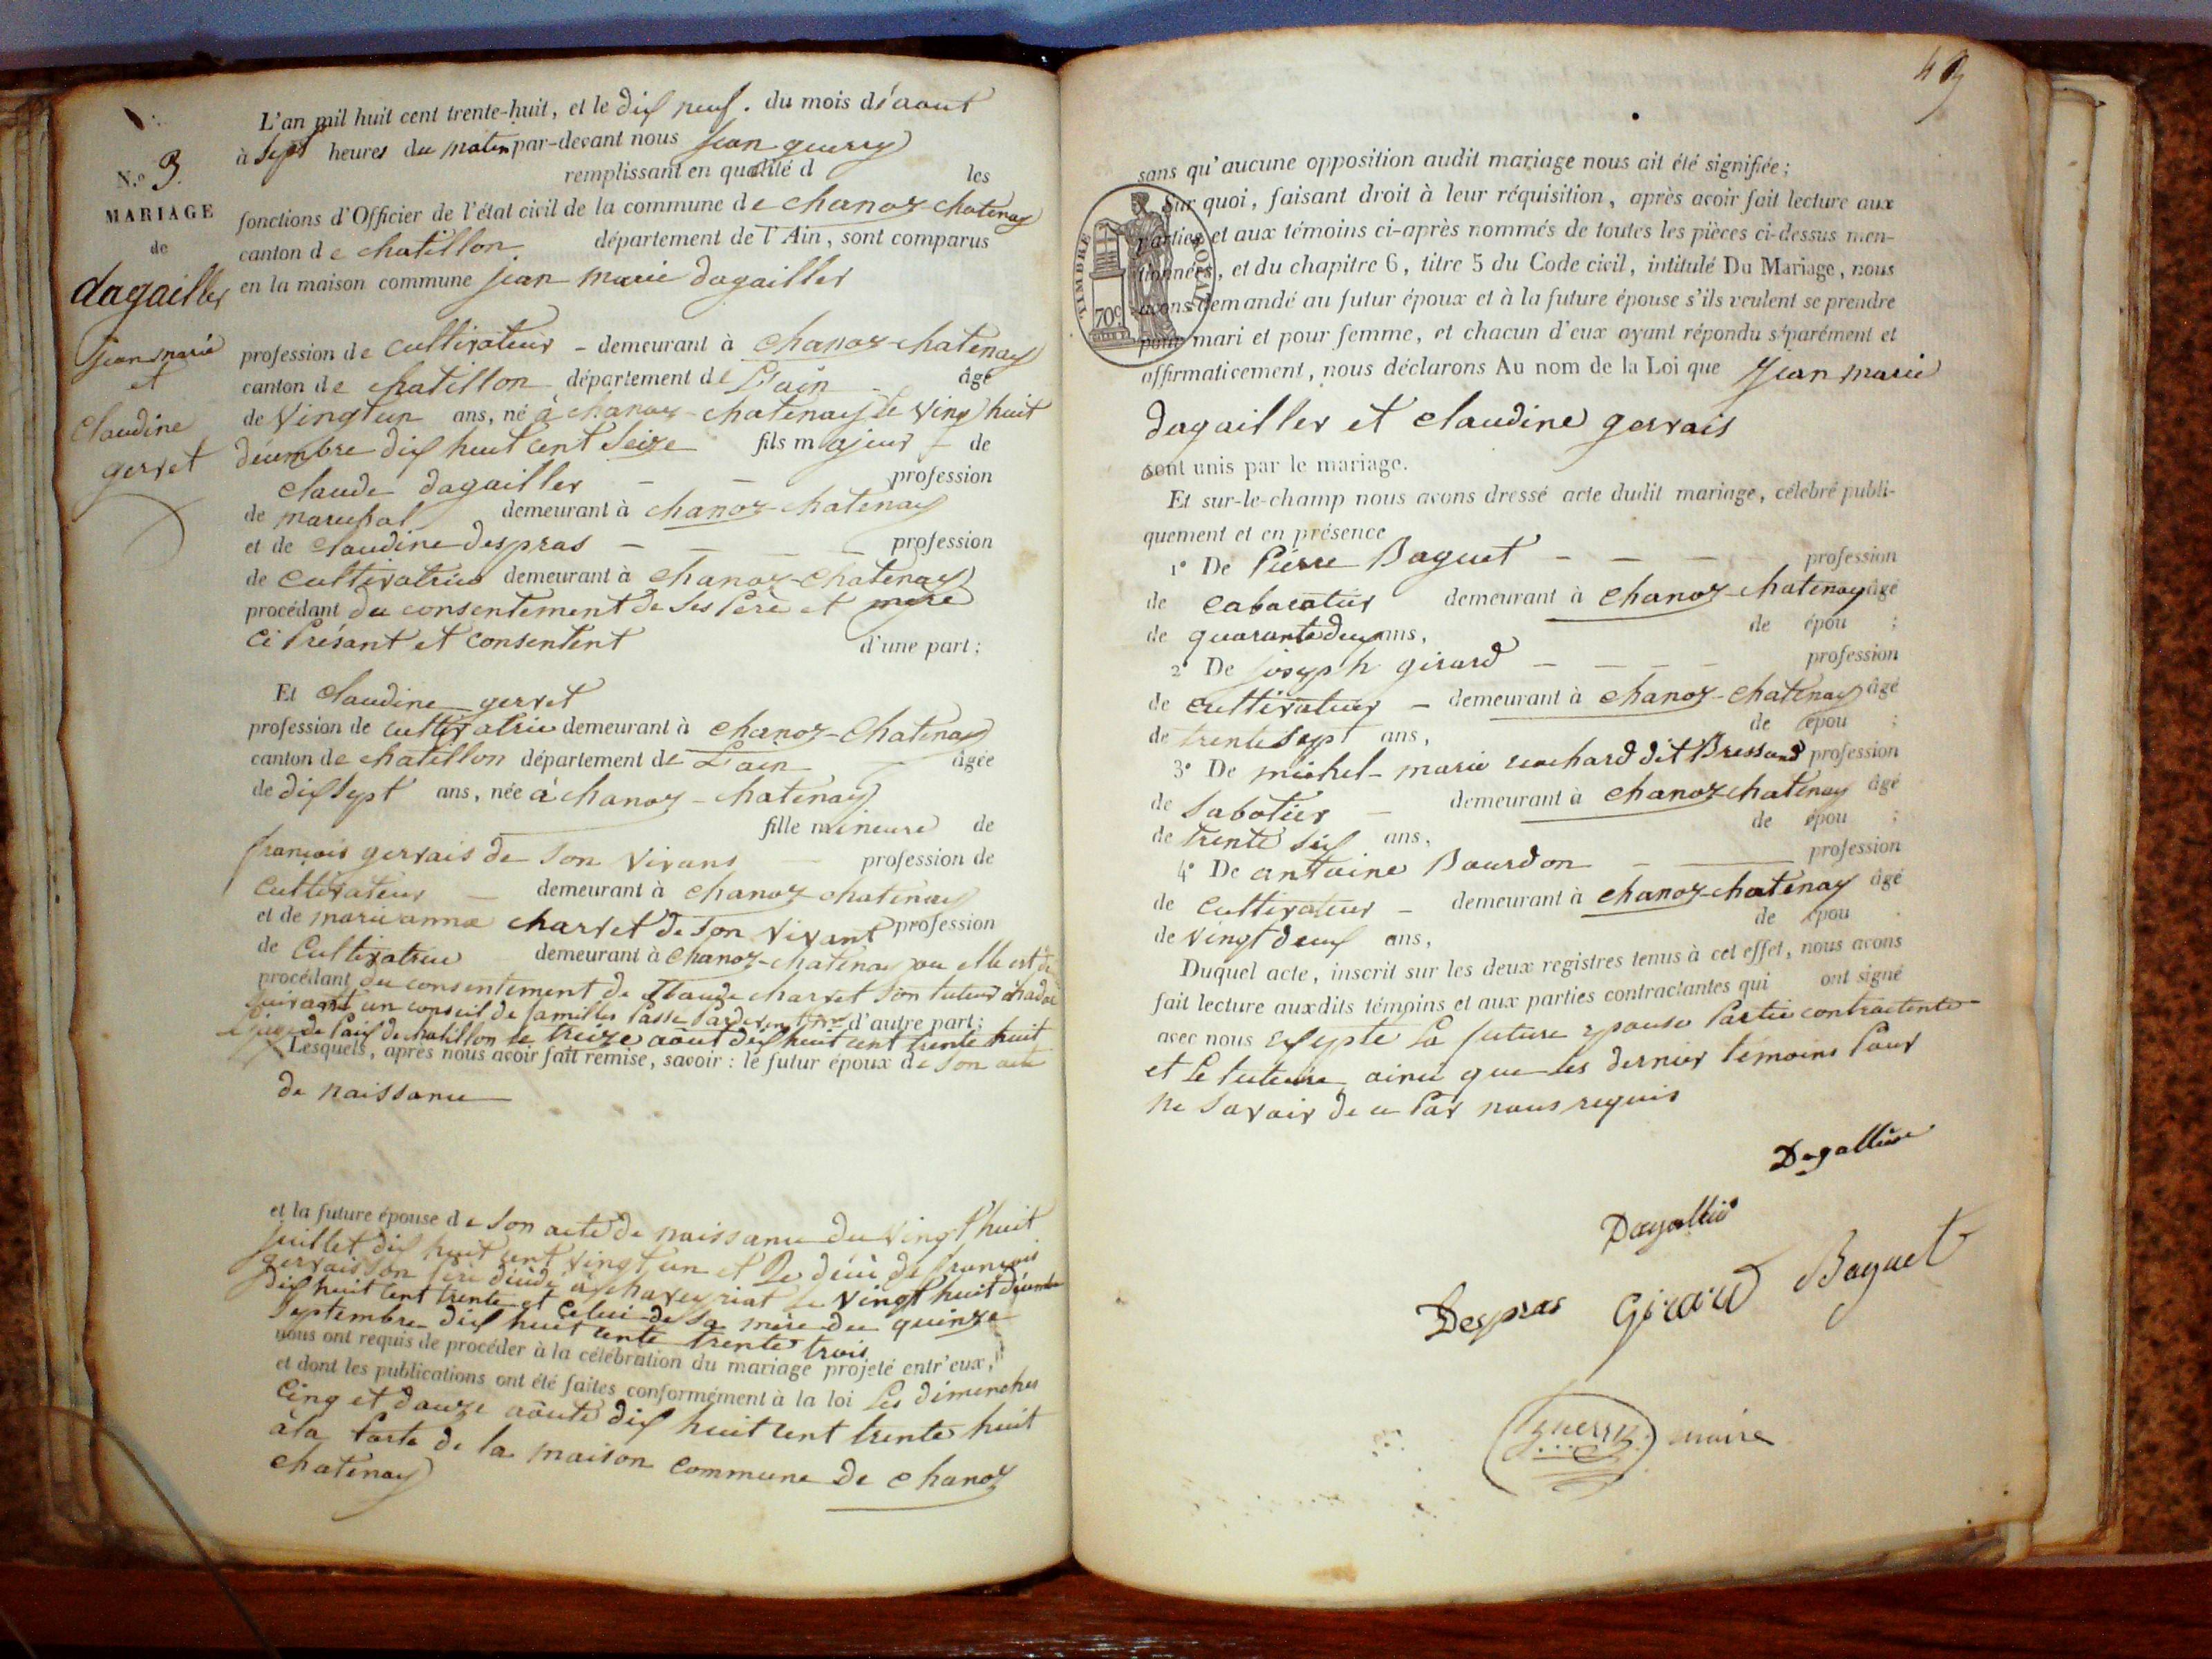 L'an mil huit cent trente-huit, et le dix neuf. du mois d'aout
à sept heures du matin par-devant nous jean guerry
remplissant en qualité d les
N.º 3.
MARIAGE
de
dagailler
jean marie
et
Claudine
gervet
fonctions d'Officier de l'état civil de la commune de chanoz chatenay
canton de chatillon département de l'Ain, sont comparus
en la maison commune jean marie dagailler
profession de cultivateur - demeurant à chanoz-chatenay
canton de chatillon département de L'ain âgé
de Vingt un ans, né à chanoz-chatenay le Vingt huit
décembre dix huit cent seize fils majeur de
claude dagailler - - profession
de marechal demeurant à chanoz-chatenay
et de claudine despras - - - - profession
de cultivatrice demeurant à chanoz-chatenay
procédant du consentement de ses Père et mère
ci Présant et consentent d'une part;
Et claudine gervet
profession de cultivatrice demeurant à chanoz-chatenay
canton de chatillon département de L'ain - âgée
de dix sept ans, née à chanoz-chatenay
fille mineure de
françois gervais de son vivans - profession de
Cultivateur - demeurant à chanoz-chatenay
et de marie anne charvet de son vivant profession
de Cultivatrice demeurant à chanoz-chatenay ou elle est
procédant du consentement de charvet son tuteur
suivant un conseil de familles Passé Pardevant d'autre part;
le juge de Paix de chatillon le treize aôut dix huit cent trente huit
Lesquels, après nous avoir fait remise, savoir: le futur époux de son acte
de naissance
et la future épouse de son acte de naissance du Vingt huit
juillet dix huit cent vingt un et de françois
gervais son père décédé à chaveyriat le vingt huit décembre
dix huit cent trente et celui de sa mère du quinze
septembre dix huit cente trente trois
nous ont requis de procéder à la célébration du mariage projeté entr'eux,
et dont les publications ont été faites conformément à la loi Les dimenches
Cinq et douze aôute dix huit cent trente huit
à la Porte de la maison commune de chanoz
chatenay
49
sans qu'aucune opposition audit mariage nous ait été signifiée;
Sur quoi, faisant droit à leur réquisition, après avoir fait lecture aux
parties et aux témoins ci-après nommés de toutes les pièces ci-dessus men-
tionnées, et du chapitre 6, titre 5 du Code civil, intitulé Du Mariage, nous
avons demandé au futur époux et à la future épouse s'ils veulent se prendre
pour mari et pour femme, et chacun d'eux ayant répondu séparément et
affirmativement, nous déclarons Au nom de la Loi que Jean marie
TIMBRE ROYAL
70c
dagailler et claudine gervais
sont unis par le mariage.
Et sur-le-champ nous avons dressé acte dudit mariage, célébré publi-
quement et en présence
1º De Pierre Baguet - - - - profession
de cabaratier demeurant à chanoz-chatenay âgé
de quarante deux ans, de épou ;
2º De joseph girard - - - - profession
de cultivateur - demeurant à chanoz-chatenay âgé
de trente sept ans, de épou ;
3º De michel-marie dit Bressand profession
de Sabotier - demeurant à chanoz-chatenay âgé
de trente six ans, de épou ;
4º De antoine Bourdon - profession
de cultivateur - demeurant à chanoz-chatenay âgé
de vingt deux ans, de épou .
Duquel acte, inscrit sur les deux registres tenus à cet effet, nous avons
fait lecture auxdits témoins et aux parties contractantes qui ont signé
avec nous exepté La future epouse Partie contractente
et Le tuteur ainci que les dernier temoins Pour
ne savoir de ce Par nous requis
Dagallier
Dagallier
Despras Girard Baguet
Guerry maire